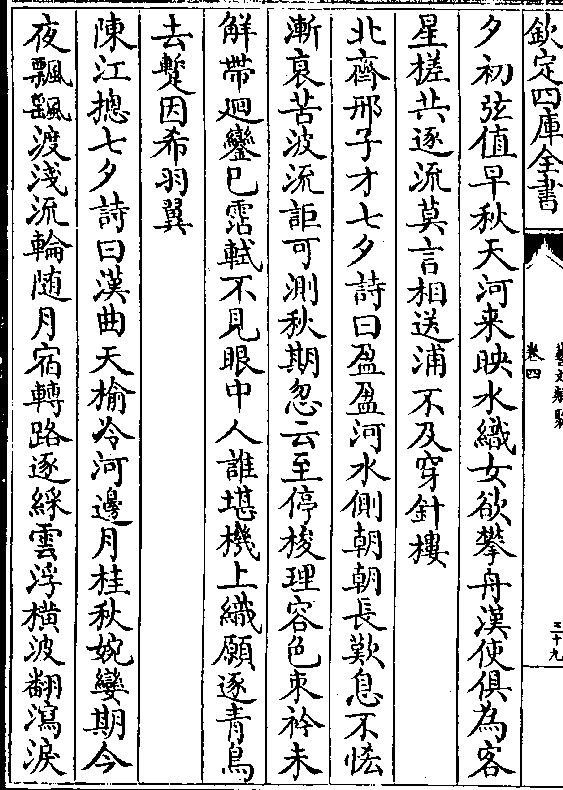 欽定四庫全書
藝文類聚
卷四
三十九
夕初弦值早秋天河来映水織女欲攀舟漢使俱為客
星槎共逐流莫言相送浦不及穿針樓
北齊邢子才七夕詩曰盈盈河水側朝朝長歎息不恡
漸衰苦波流詎可測秋期忽云至停梭理容色束衿未
解帶迴鑾已霑軾不見眼中人誰堪機上織願逐青鳥
去蹔因希羽翼
陳江摠七夕詩曰漢曲天榆冷河邊月桂秋婉孌期今
夜飄颻渡淺流輪随月宿轉路逐綵雲浮橫波翻瀉淚